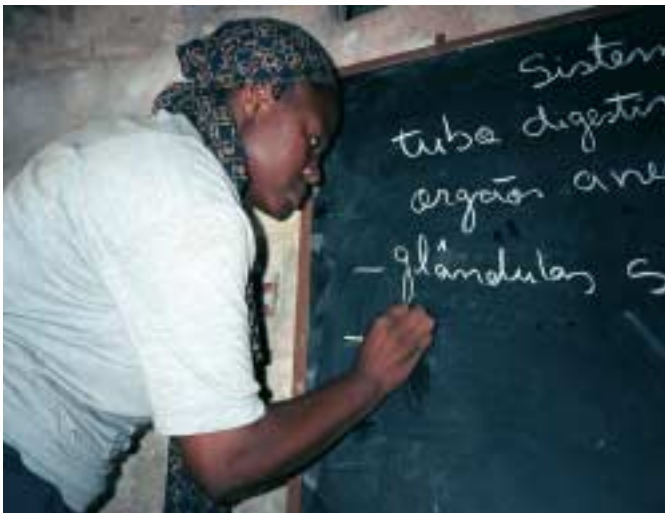 Sistem
tubo digestiv
orgãos ane
- glândulas s
-